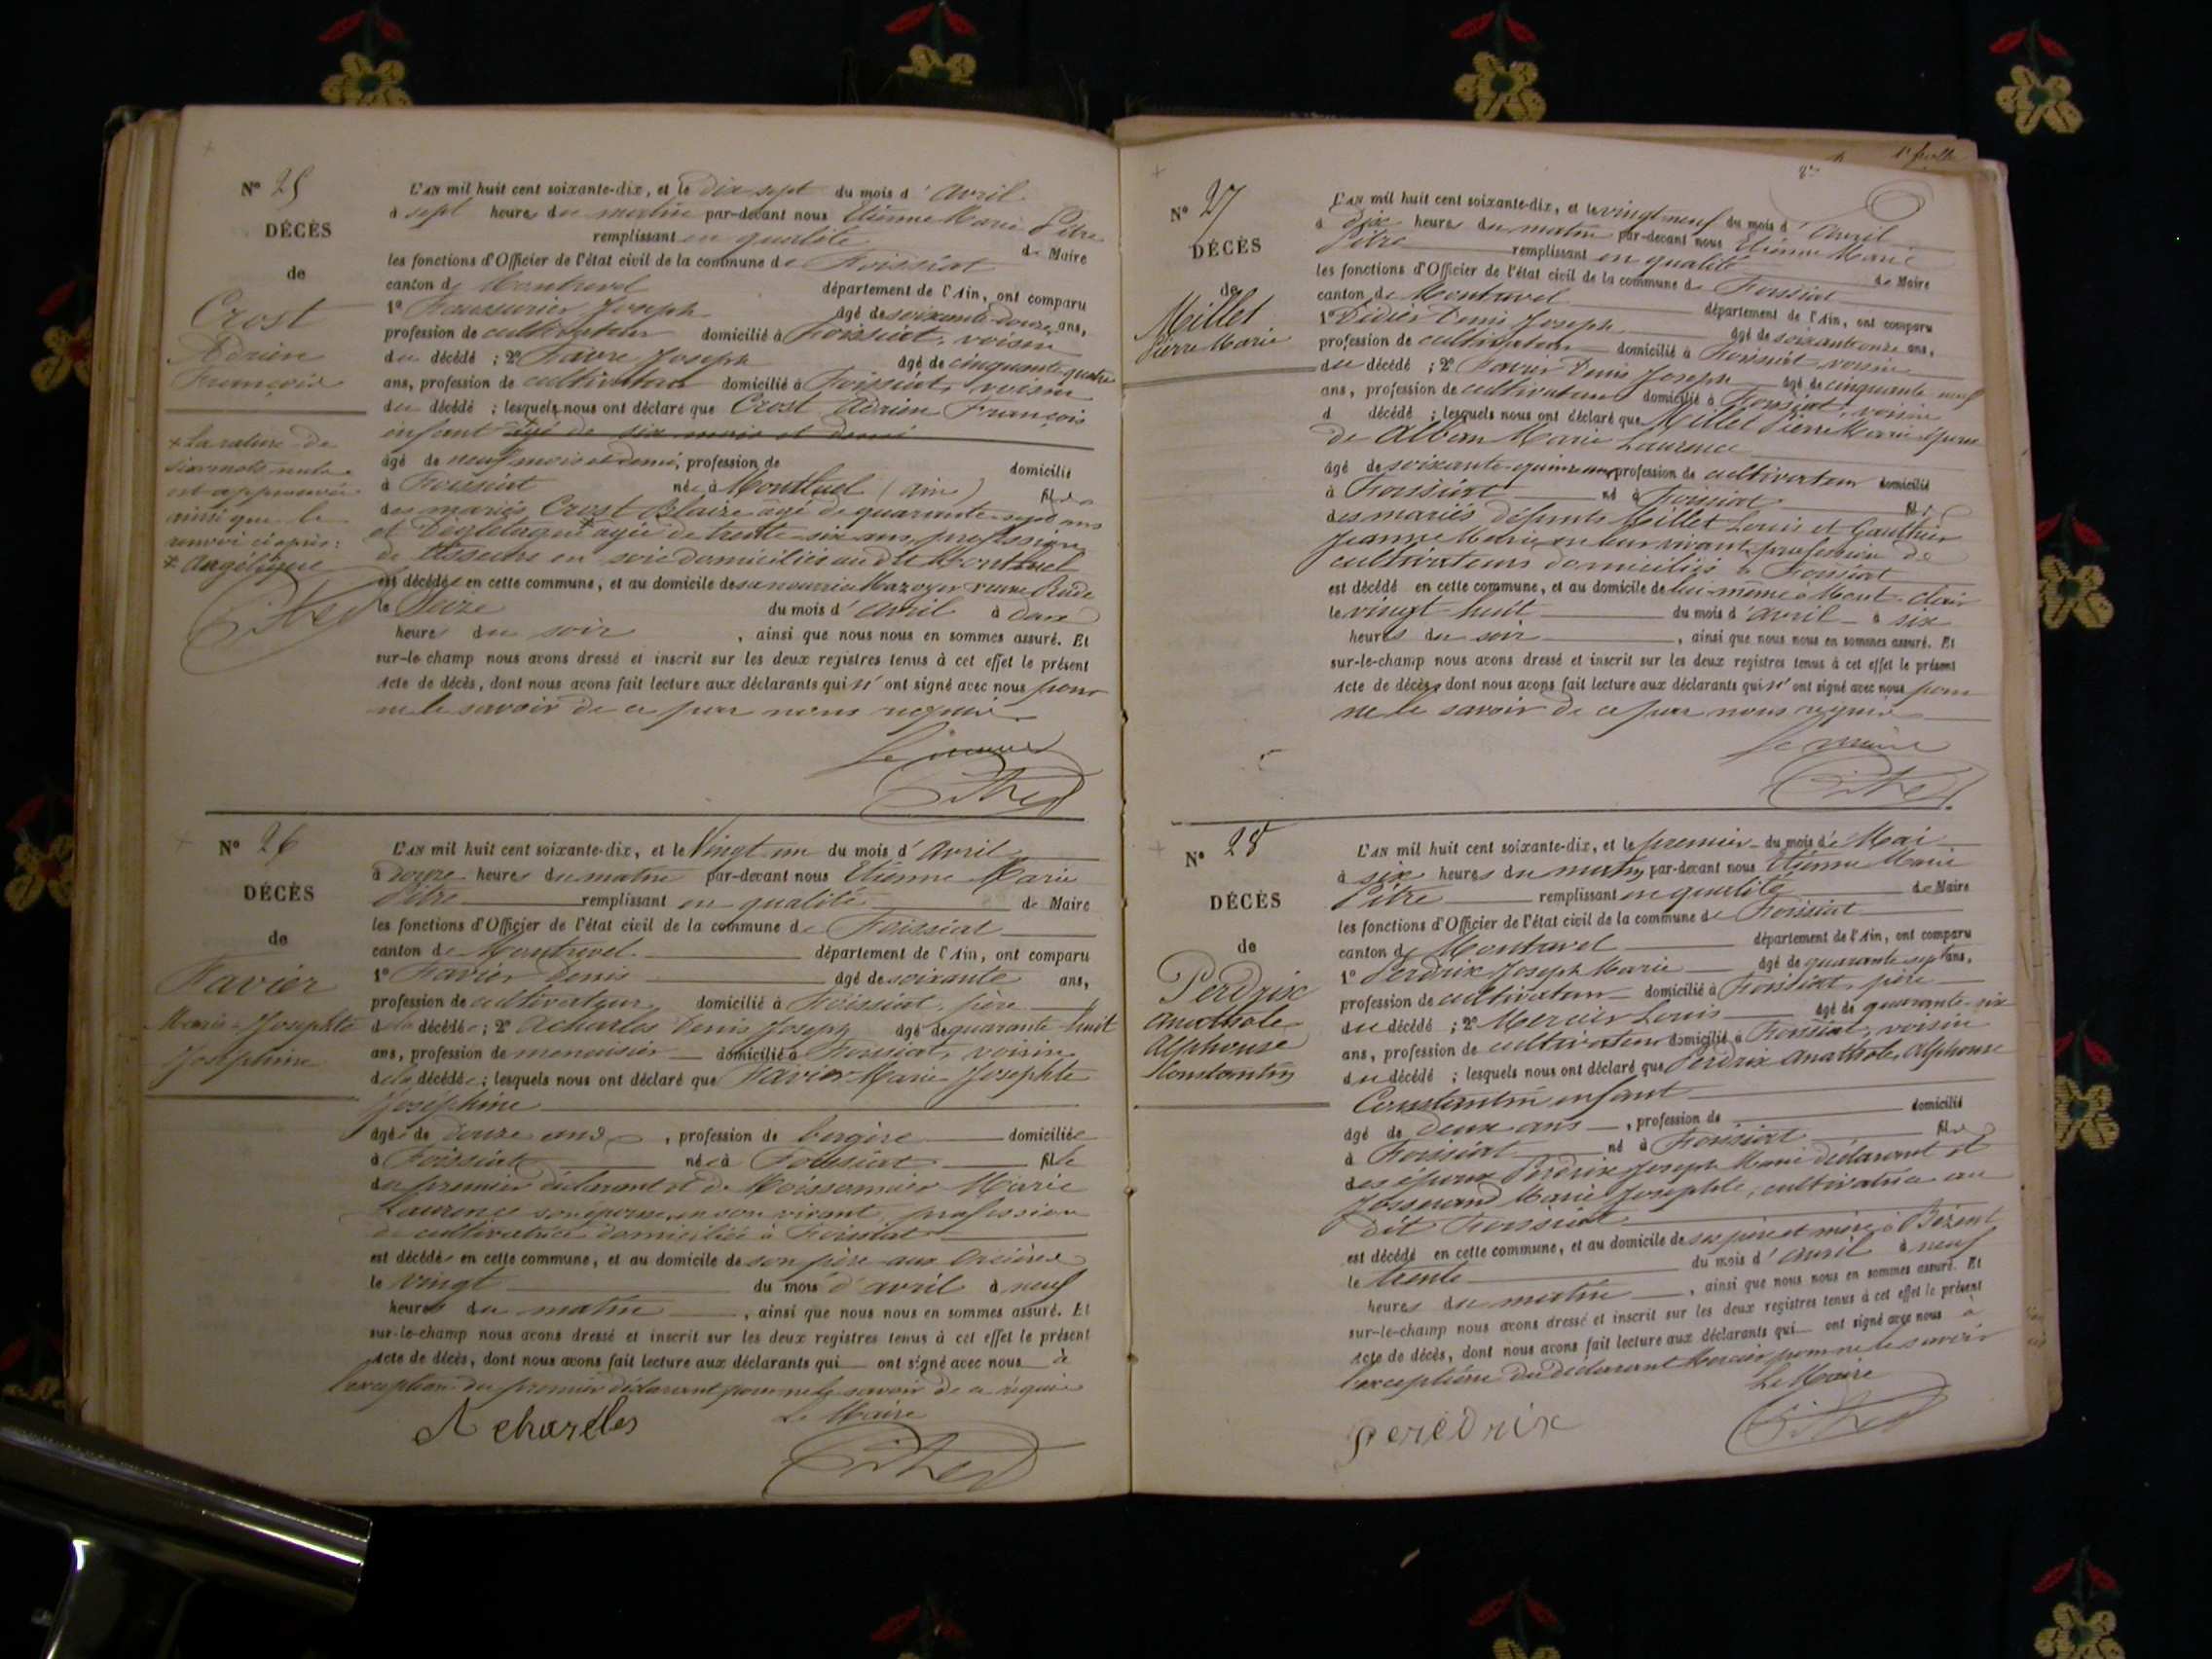 N° 25
DÉCÈS
de
Crost
Adrien
François
* La rature de
six mots nuls
est approuvée
ainsi que le
renvoi ci-après :
* Angélique
Pitre
L'AN mil huit cent soixante-dix, et le dix sept du mois d'avril
à sept heures du matin par-devant nous Etienne Marie Pitre
remplissant en qualité de Maire
les fonctions d'Officier de l'état civil de la commune de Foissiat
canton de Montrevel département de l'Ain, ont comparu
1° Joseph âgé de soixante-douze ans,
profession de cultivateur domicilié à Foissiat, voisin
du décédé ; 2° Favre Joseph âgé de cinquante quatre
ans, profession de cultivateur domicilié à Foissiat, voisin
du décédé ; lesquels nous ont déclaré que Crost Adrien François
enfant âgé de six mois et demi
âgé de neuf mois et demi, profession de domicilié
à Foissiat né à Montluel (Ain) fils
des mariés Crost Blaise âgé de quarante-sept ans
et * âgée de trente-six ans, profession
de tisseurs en soie domiciliés au dit Montluel
est décédé en cette commune, et au domicile de sa nourrice Mazoyer veuve Rude
le seize du mois d'avril à onze
heures du soir, ainsi que nous nous en sommes assuré. Et
sur-le-champ nous avons dressé et inscrit sur les deux registres tenus à cet effet le présent
Acte de décès, dont nous avons fait lecture aux déclarants qui n'ont signé avec nous pour
ne le savoir de ce par nous requis
Le maire
Pitre
N° 26
DÉCÈS
de
Favier
Marie-Josephte
Joséphine
L'AN mil huit cent soixante-dix, et le vingt un du mois d'avril
à douze heures du matin par-devant nous Etienne Marie
Pitre remplissant en qualité de Maire
les fonctions d'Officier de l'état civil de la commune de Foissiat
canton de Montrevel département de l'Ain, ont comparu
1° Favier Denis âgé de soixante ans,
profession de cultivateur domicilié à Foissiat, père
de la décédée ; 2° Acharles Denis Joseph âgé de quarante-huit
ans, profession de menuisier domicilié à Foissiat, voisin
de la décédée ; lesquels nous ont déclaré que Favier Marie Josephte
Joséphine
âgée de douze ans, profession de bergère domiciliée
à Foissiat née à Foissiat fille
du premier déclarant et de Moissonnier Marie
Laurence son épouse, en son vivant, profession
de cultivatrice domiciliée à Foissiat
est décédée en cette commune, et au domicile de son père aux
le vingt du mois d'avril à neuf
heures du matin, ainsi que nous nous en sommes assuré. Et
sur-le-champ nous avons dressé et inscrit sur les deux registres tenus à cet effet le présent
Acte de décès, dont nous avons fait lecture aux déclarants qui ont signé avec nous à
l'exception du premier déclarant pour ne le savoir de ce requis
Le Maire
Acharles
Pitre
N° 27
DÉCÈS
de
Millet
Pierre Marie
L'AN mil huit cent soixante-dix, et le vingt neuf du mois d'avril
à dix heures du matin par-devant nous Etienne Marie
Pitre remplissant en qualité de Maire
les fonctions d'Officier de l'état civil de la commune de Foissiat
canton de Montrevel département de l'Ain, ont comparu
1° Didier Denis Joseph âgé de soixante onze ans,
profession de cultivateur domicilié à Foissiat, voisin
du décédé ; 2° Favier Denis Joseph âgé de cinquante neuf
ans, profession de cultivateur domicilié à Foissiat, voisin
d décédé ; lesquels nous ont déclaré que Millet Pierre Marie époux
de Alban Marie Laurence
âgé de soixante-quinze ans profession de cultivateur domicilié
à Foissiat né à Foissiat fils
des mariés défunts Millet Louis et Gauthier
Jeanne Marie, en leur vivant profession de
cultivateurs domiciliés à Foissiat
est décédé en cette commune, et au domicile de lui-même à Mont-clair
le vingt-huit du mois d'avril à six
heures du soir, ainsi que nous nous en sommes assuré. Et
sur-le-champ nous avons dressé et inscrit sur les deux registres tenus à cet effet le présent
Acte de décès, dont nous avons fait lecture aux déclarants qui n'ont signé avec nous pour
ne le savoir de ce par nous requis
Le maire
Pitre
N° 28
DÉCÈS
de
Perdrix
Anathole
Alphonse
Constantin
L'AN mil huit cent soixante-dix, et le premier du mois de Mai
à six heures du matin, par-devant nous Etienne Marie
Pitre remplissant en qualité de Maire
les fonctions d'Officier de l'état civil de la commune de Foissiat
canton de Montrevel département de l'Ain, ont comparu
1° Perdrix Joseph Marie âgé de quarante sept ans,
profession de cultivateur domicilié à Foissiat, père
du décédé ; 2° Mercier Louis âgé de quarante-six
ans, profession de cultivateur domicilié à Foissiat, voisin
du décédé ; lesquels nous ont déclaré que Perdrix Anathole, Alphonse
Constantin enfant
âgé de deux ans, profession de domicilié
à Foissiat né à Foissiat fils
des époux Perdrix Joseph Marie déclarant et
Josserand Marie Josephte, cultivatrice au
dit Foissiat
est décédé en cette commune, et au domicile de ses père et mère à Bézent
le trente du mois d'avril à neuf
heures du matin, ainsi que nous nous en sommes assuré. Et
sur-le-champ nous avons dressé et inscrit sur les deux registres tenus à cet effet le présent
Acte de décès, dont nous avons fait lecture aux déclarants qui ont signé avec nous à
l'exception du déclarant Mercier pour ne le savoir
Le Maire
Peredrix
Pitre